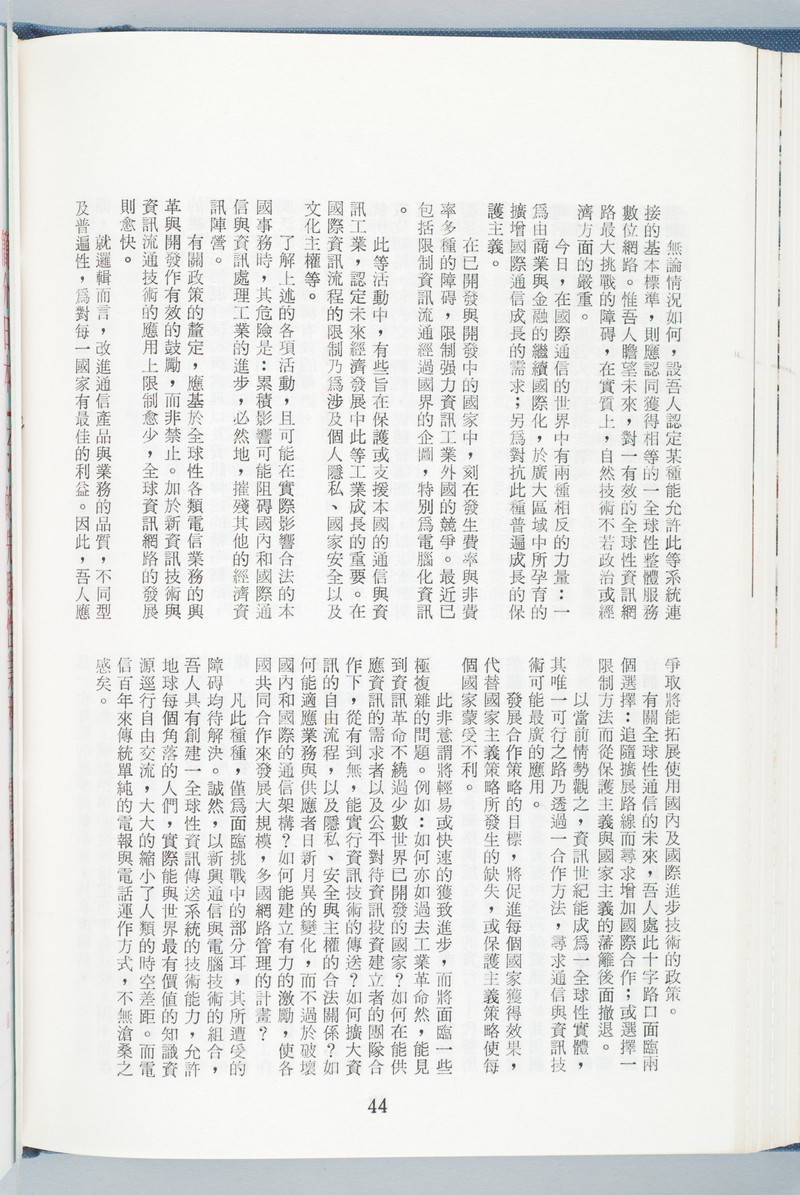 無論情況如何，設吾人認定某種能允許此等系統連
接的基本標準，則應認同獲得相等的一全球性整體服務
數位網路。惟吾人瞻望未來，對一有效的全球性資訊網
路最大挑戰的障碍，在實質上，自然技術不若政治或經
濟方面的嚴重。
今日，在國際通信的世界中有兩種相反的力量：一
為由商業與金融的繼續國際化，於廣大區域中所孕育的
擴增國際通信成長的需求；另爲對抗此種普遍成長的保
護主義。
在已開發與開發中的國家中，刻在發生費率與非費
率多種的障碍，限制强力資訊工業外國的競爭。最近已
包括限制資訊流通經過國界的企圖，特別爲電腦化資訊
。
此等活動中，有些旨在保護或支援本國的通信與資
訊工業，認定未來經濟發展中此等工業成長的重要。在
國際資訊流程的限制乃爲涉及個人隱私、國家安全以及
文化主權等。
了解上述的各項活動，且可能在實際影響合法的本
國事務時，其危險是：累積影響可能阻碍國內和國際通
信與資訊處理工業的進步，必然地，摧殘其他的經濟資
訊陣營。
有關政策的釐定，應基於全球性各類電信業務的興
革與開發作有效的鼓勵，而非禁止。加於新資訊技術與
資訊流通技術的應用上限制愈少，全球資訊網路的發展
則愈快。
就邏輯而言，改進通信產品與業務的品質，不同型
及普遍性，爲對每一國家有最佳的利益。因此，吾人應
爭取將能拓展使用國內及國際進步技術的政策。
有關全球性通信的未來，吾人處此十字路口面臨兩
個選擇：追隨擴展路線而尋求增加國際合作；或選擇一
限制方法而從保護主義與國家主義的藩籬後面撤退。
以當前情勢觀之，資訊世紀能成爲一全球性實體，
其唯一可行之路乃透過一合作方法，尋求通信與資訊技
術可能最廣的應用。
發展合作策略的目標，將促進每個國家獲得效果，
代替國家主義策略所發生的缺失，或保護主義策略使每
個國家蒙受不利。
此非意謂將輕易或快速的獲致進步，而將面臨一些
極複雜的問題。例如：如何亦如過去工業革命然，能見
到資訊革命不繞過少數世界已開發的國家？如何在能供
應資訊的需求者以及公平對待資訊投資建立者的團隊合
作下，從有到無，能實行資訊技術的傳送？如何擴大資
訊的自由流程，以及隱私、安全與主權的合法關係？如
何能適應業務與供應者日新月異的變化，而不過於破壞
國內和國際的通信架構？如何能建立有力的激勵，使各
國共同合作來發展大規模，多國網路管理的計畫？
凡此種種，僅爲面臨挑戰中的部分耳，其所遭受的
障碍均待解決。誠然，以新興通信與電腦技術的組合，
吾人具有創建一全球性資訊傳送系統的技術能力，允許
地球每個角落的人們，實際能與世界最有價值的知識資
源逕行自由交流，大大的縮小了人類的時空差距。而電
信百年來傳統單純的電報與電話運作方式，不無滄桑之
感矣。
44